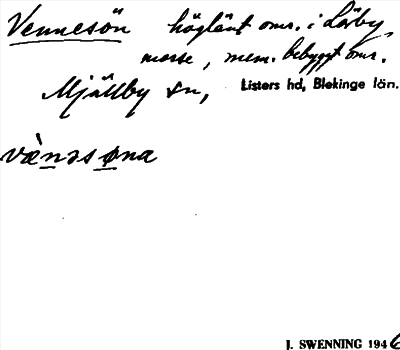 Vennesön höglänt omr. i Lörby
mosse, mem. bebyggt omr.
Mjällby sn, Listers hd, Blekinge län.
vànǝsøna
J. SWENNING 1946